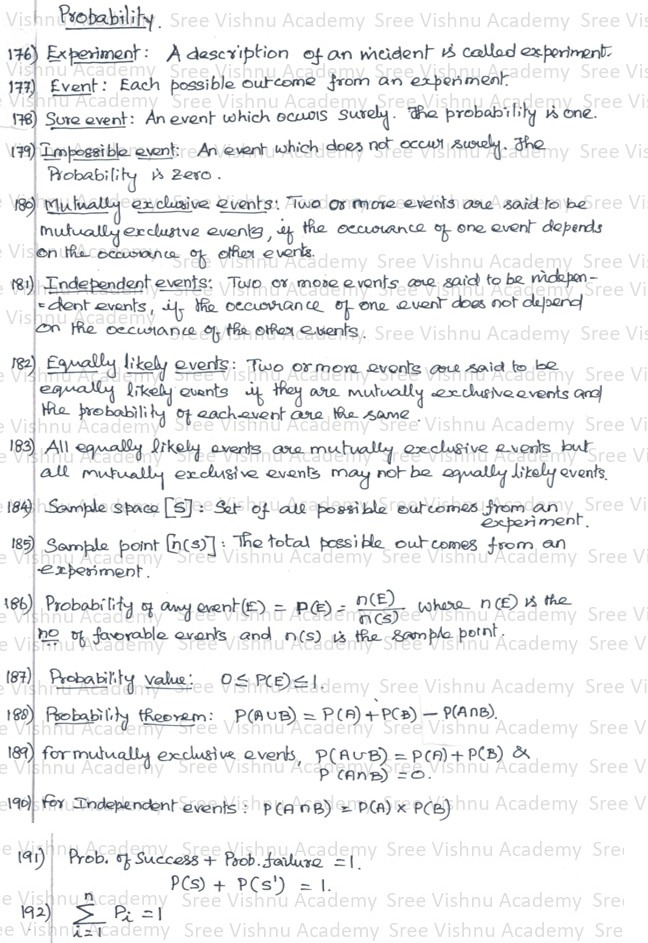 Probability.
176) Experiment: A description of an incident is called experiment.
177) Event: Each possible outcome from an experiment.
178) Sure event: An event which occurs surely. The probability is one.
179) Impossible event: An event which does not occur surely. The
Probability is zero.
180) Mutually exclusive events: Two or more events are said to be
mutually exclusive events, if the occurance of one event depends
on the occurance of other events.
181) Independent events: Two or more events are said to be indepen-
=dent events, if the occurrance of one event does not depend
on the occurance of the other events.
182) Equally likely events: Two or more events are said to be
equally likely events if they are mutually exclusive events and
the probability of each event are the same.
183) All equally likely events are mutually exclusive events but
all mutually exclusive events may not be equally likely events.
184) Sample space [S]: Set of all possible outcomes from an
experiment.
185) Sample point [n(S)]: The total possible outcomes from an
experiment.
186) Probability of any event (E) = P(E) = n(E)/n(S) where n(E) is the
no of favorable events and n(S) is the sample point.
187) Probability value: 0 ≤ P(E) ≤ 1.
188) Probability theorem: P(A∪B) = P(A) + P(B) − P(A∩B).
189) for mutually exclusive events, P(A∪B) = P(A) + P(B) &
P(A∩B) = 0.
190) for Independent events: P(A∩B) = P(A) × P(B)
191) Prob. of Success + Prob. failure = 1.
P(S) + P(S') = 1.
192) n∑i=1 Pi = 1
Sree Vishnu Academy